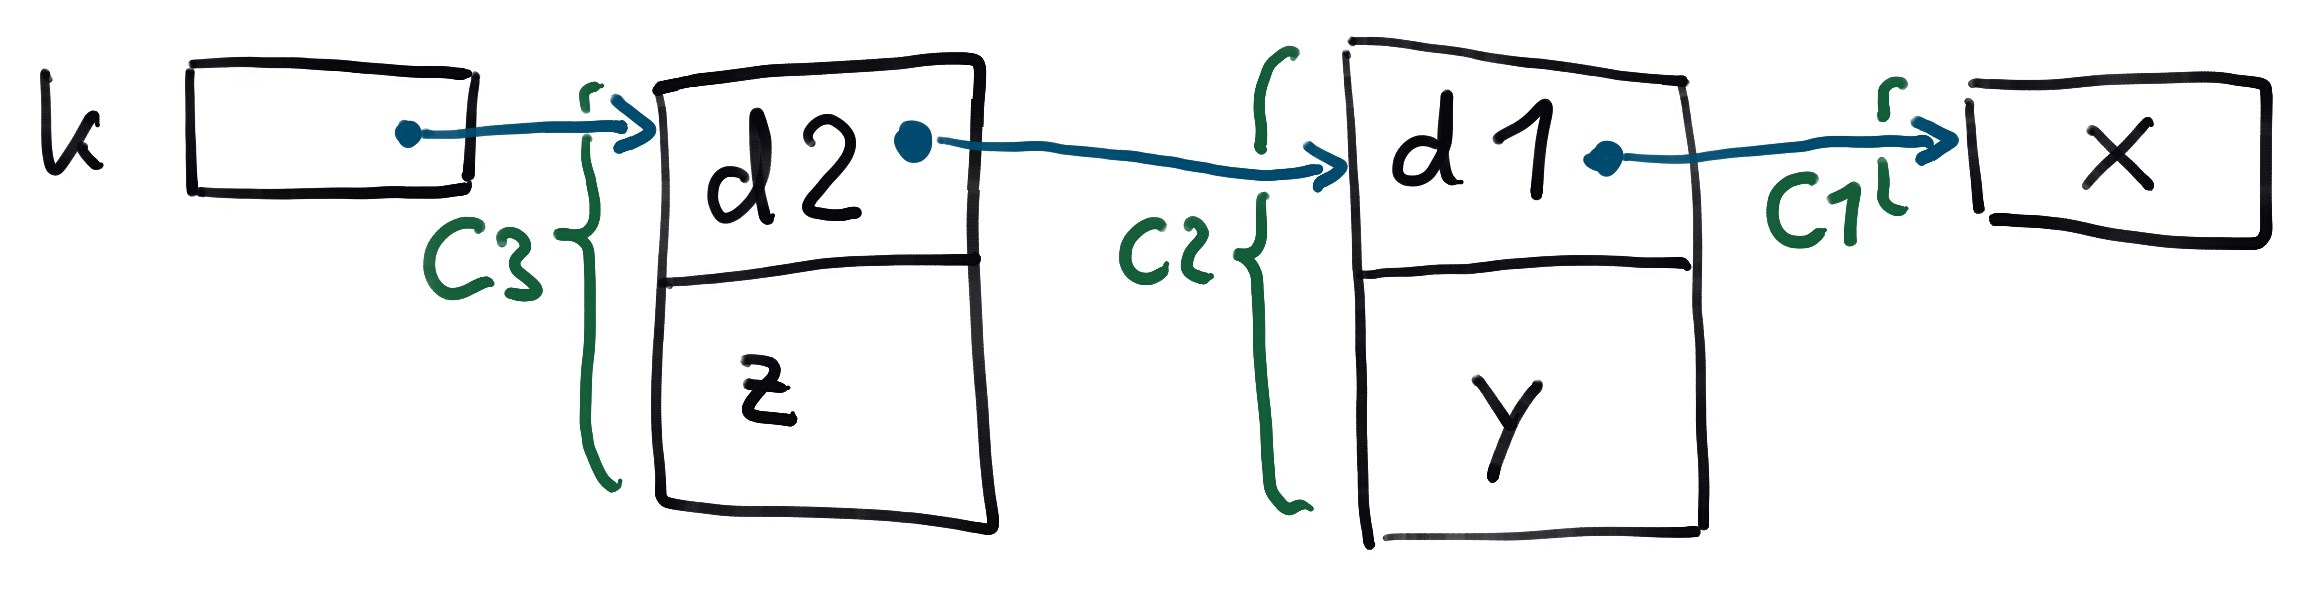 k
C3
d2
z
C2
d1
y
C1
x